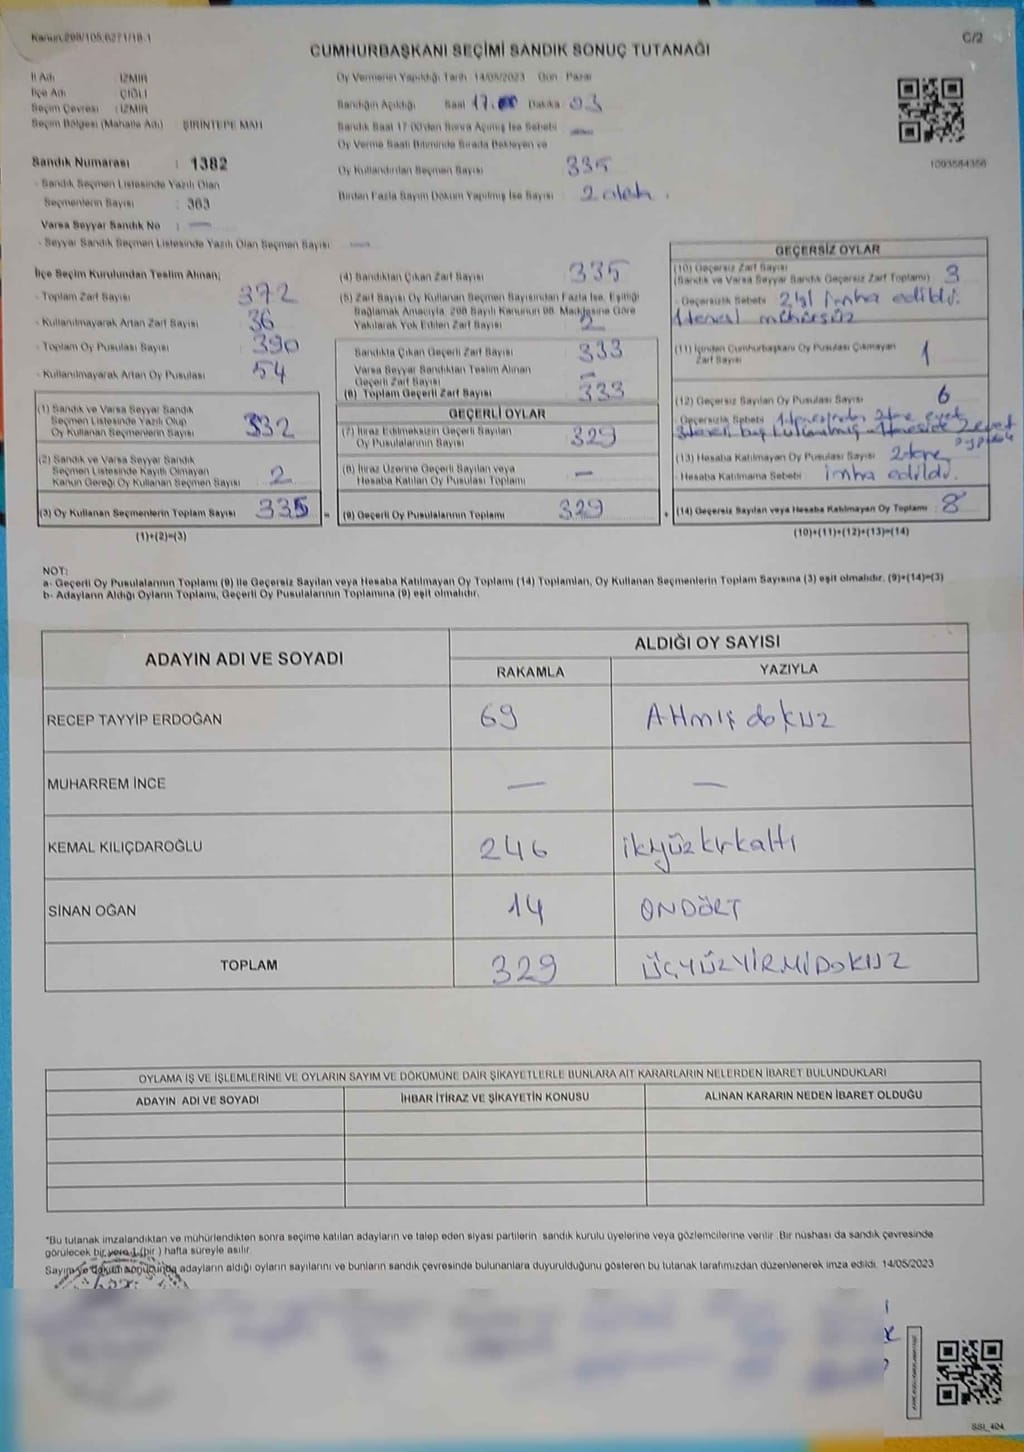 Kanun:298/105,6271/18-1
C/2
CUMHURBAŞKANI SEÇİMİ SANDIK SONUÇ TUTANAĞI
İl Adı : İZMİR
İlçe Adı : ÇİĞLİ
Seçim Çevresi : İZMİR
Seçim Bölgesi (Mahalle Adı) : ŞİRİNTEPE MAH
Sandık Numarası : 1382
- Sandık Seçmen Listesinde Yazılı Olan
Seçmenlerin Sayısı : 363
Varsa Seyyar Sandık No : —
- Seyyar Sandık Seçmen Listesinde Yazılı Olan Seçmen Sayısı : —
Oy Vermenin Yapıldığı Tarih : 14/05/2023 Gün : Pazar
Sandığın Açıldığı Saat 17.00 Dakika : 03
Sandık Saat 17:00'den Sonra Açılmış İse Sebebi : —
Oy Verme Saati Bitiminde Sırada Bekleyen ve
Oy Kullandırılan Seçmen Sayısı : 335
Birden Fazla Sayım Döküm Yapılmış İse Sayısı : 2 adet
1093584356
İlçe Seçim Kurulundan Teslim Alınan;
- Toplam Zarf Sayısı : 372
- Kullanılmayarak Artan Zarf Sayısı : 36
- Toplam Oy Pusulası Sayısı : 390
- Kullanılmayarak Artan Oy Pusulası : 54
(1) Sandık ve Varsa Seyyar Sandık
Seçmen Listesinde Yazılı Olup
Oy Kullanan Seçmenlerin Sayısı : 332
(2) Sandık ve Varsa Seyyar Sandık
Seçmen Listesinde Kayıtlı Olmayan
Kanun Gereği Oy Kullanan Seçmen Sayısı : 2
(3) Oy Kullanan Seçmenlerin Toplam Sayısı : 335
(1)+(2)=(3)
(4) Sandıktan Çıkan Zarf Sayısı : 335
(5) Zarf Sayısı Oy Kullanan Seçmen Sayısından Fazla İse, Eşitliği
Sağlamak Amacıyla, 298 Sayılı Kanunun 98. Maddesine Göre
Yakılarak Yok Edilen Zarf Sayısı : 2
Sandıkta Çıkan Geçerli Zarf Sayısı : 333
Varsa Seyyar Sandıktan Teslim Alınan
Geçerli Zarf Sayısı : —
(6) Toplam Geçerli Zarf Sayısı : 333
GEÇERLİ OYLAR
(7) İtiraz Edilmeksizin Geçerli Sayılan
Oy Pusulalarının Sayısı : 329
(8) İtiraz Üzerine Geçerli Sayılan veya
Hesaba Katılan Oy Pusulası Toplamı : —
= (9) Geçerli Oy Pusulalarının Toplamı : 329
GEÇERSİZ OYLAR
(10) Geçersiz Zarf Sayısı
(Sandık ve Varsa Seyyar Sandık Geçersiz Zarf Toplamı) : 3
- Geçersizlik Sebebi : 2'si imha edildi.
1 tenesi mühürsüz
(11) İçinden Cumhurbaşkanı Oy Pusulası Çıkmayan
Zarf Sayısı : 1
(12) Geçersiz Sayılan Oy Pusulası Sayısı : 6
- Geçersizlik Sebebi : 1 tenesinden 2 tne evet
3 tenesi boş kullanılmış 1 tnesi de 2 evet
(13) Hesaba Katılmayan Oy Pusulası Sayısı : 2 tene
- Hesaba Katılmama Sebebi : imha edildi.
+ (14) Geçersiz Sayılan veya Hesaba Katılmayan Oy Toplamı : 8
(10)+(11)+(12)+(13)=(14)
NOT:
a- Geçerli Oy Pusulalarının Toplamı (9) ile Geçersiz Sayılan veya Hesaba Katılmayan Oy Toplamı (14) Toplamları, Oy Kullanan Seçmenlerin Toplam Sayısına (3) eşit olmalıdır. (9)+(14)=(3)
b- Adayların Aldığı Oyların Toplamı, Geçerli Oy Pusulalarının Toplamına (9) eşit olmalıdır.
ADAYIN ADI VE SOYADI ALDIĞI OY SAYISI
RAKAMLA YAZIYLA
RECEP TAYYİP ERDOĞAN 69 Altmış dokuz
MUHARREM İNCE — —
KEMAL KILIÇDAROĞLU 246 ikiyüzkırkaltı
SİNAN OĞAN 14 ONDÖRT
TOPLAM 329 ÜÇYÜZYİRMİDOKUZ
OYLAMA İŞ VE İŞLEMLERİNE VE OYLARIN SAYIM VE DÖKÜMÜNE DAİR ŞİKAYETLERLE BUNLARA AİT KARARLARIN NELERDEN İBARET BULUNDUKLARI
ADAYIN ADI VE SOYADI İHBAR İTİRAZ VE ŞİKAYETİN KONUSU ALINAN KARARIN NEDEN İBARET OLDUĞU
*Bu tutanak imzalandıktan ve mühürlendikten sonra seçime katılan adayların ve talep eden siyasi partilerin sandık kurulu üyelerine veya gözlemcilerine verilir. Bir nüshası da sandık çevresinde
görülecek bir yere 1 (bir) hafta süreyle asılır.
Sayım ve döküm sonucunda adayların aldığı oyların sayılarını ve bunların sandık çevresinde bulunanlara duyurulduğunu gösteren bu tutanak tarafımızdan düzenlenerek imza edildi. 14/05/2023
SSI_404